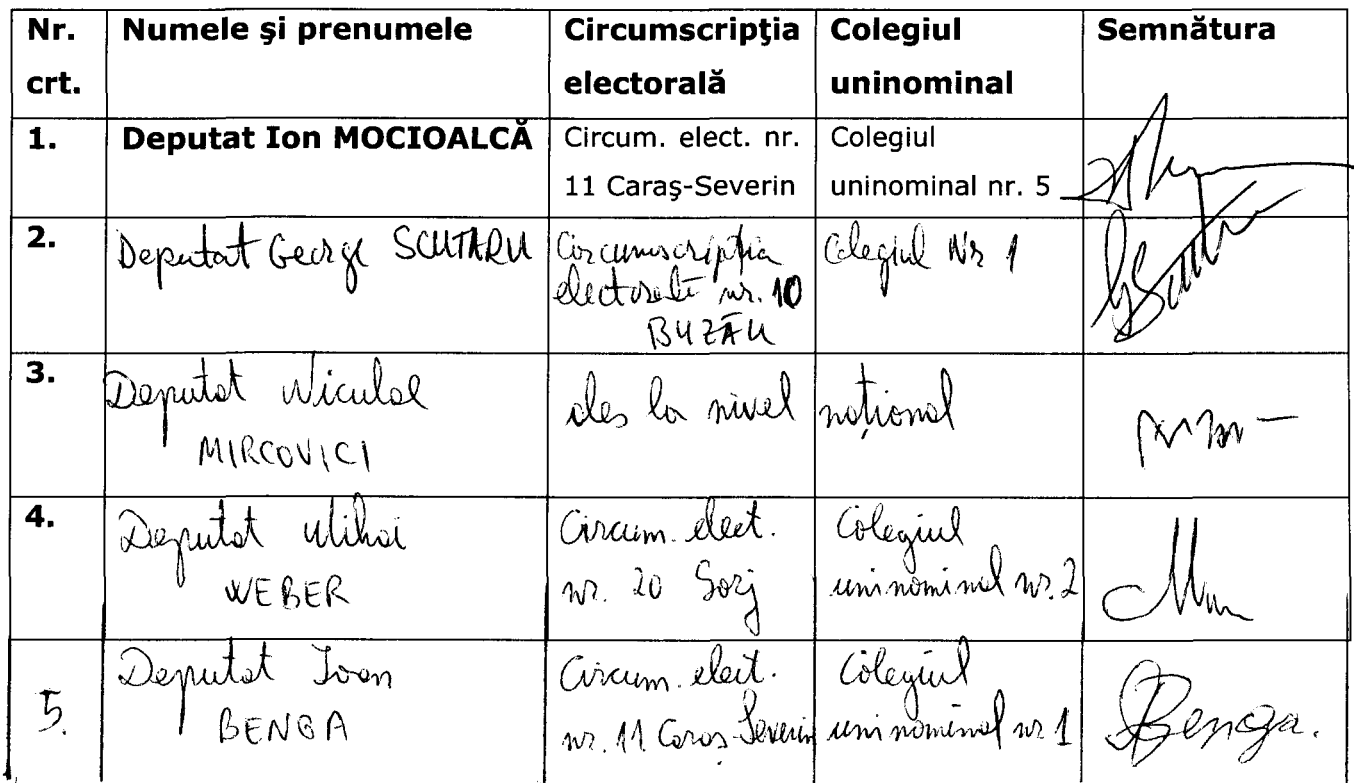 Nr. crt. Numele şi prenumele Circumscripţia electorală Colegiul uninominal Semnătura
1. Deputat Ion MOCIOALCĂ Circum. elect. nr. 11 Caraş-Severin Colegiul uninominal nr. 5
2. Deputat George SCUTARU Circumscripția electorală nr. 10 BUZĂU Colegiul Nr 1
3. Deputat Niculae MIRCOVICI ales la nivel național
4. Deputat Mihai WEBER Circum. elect. nr. 20 Gorj Colegiul uninominal nr. 2
5. Deputat Ioan BENGA Circum. elect. nr. 11 Caraș-Severin Colegiul uninominal nr 1 Benga.